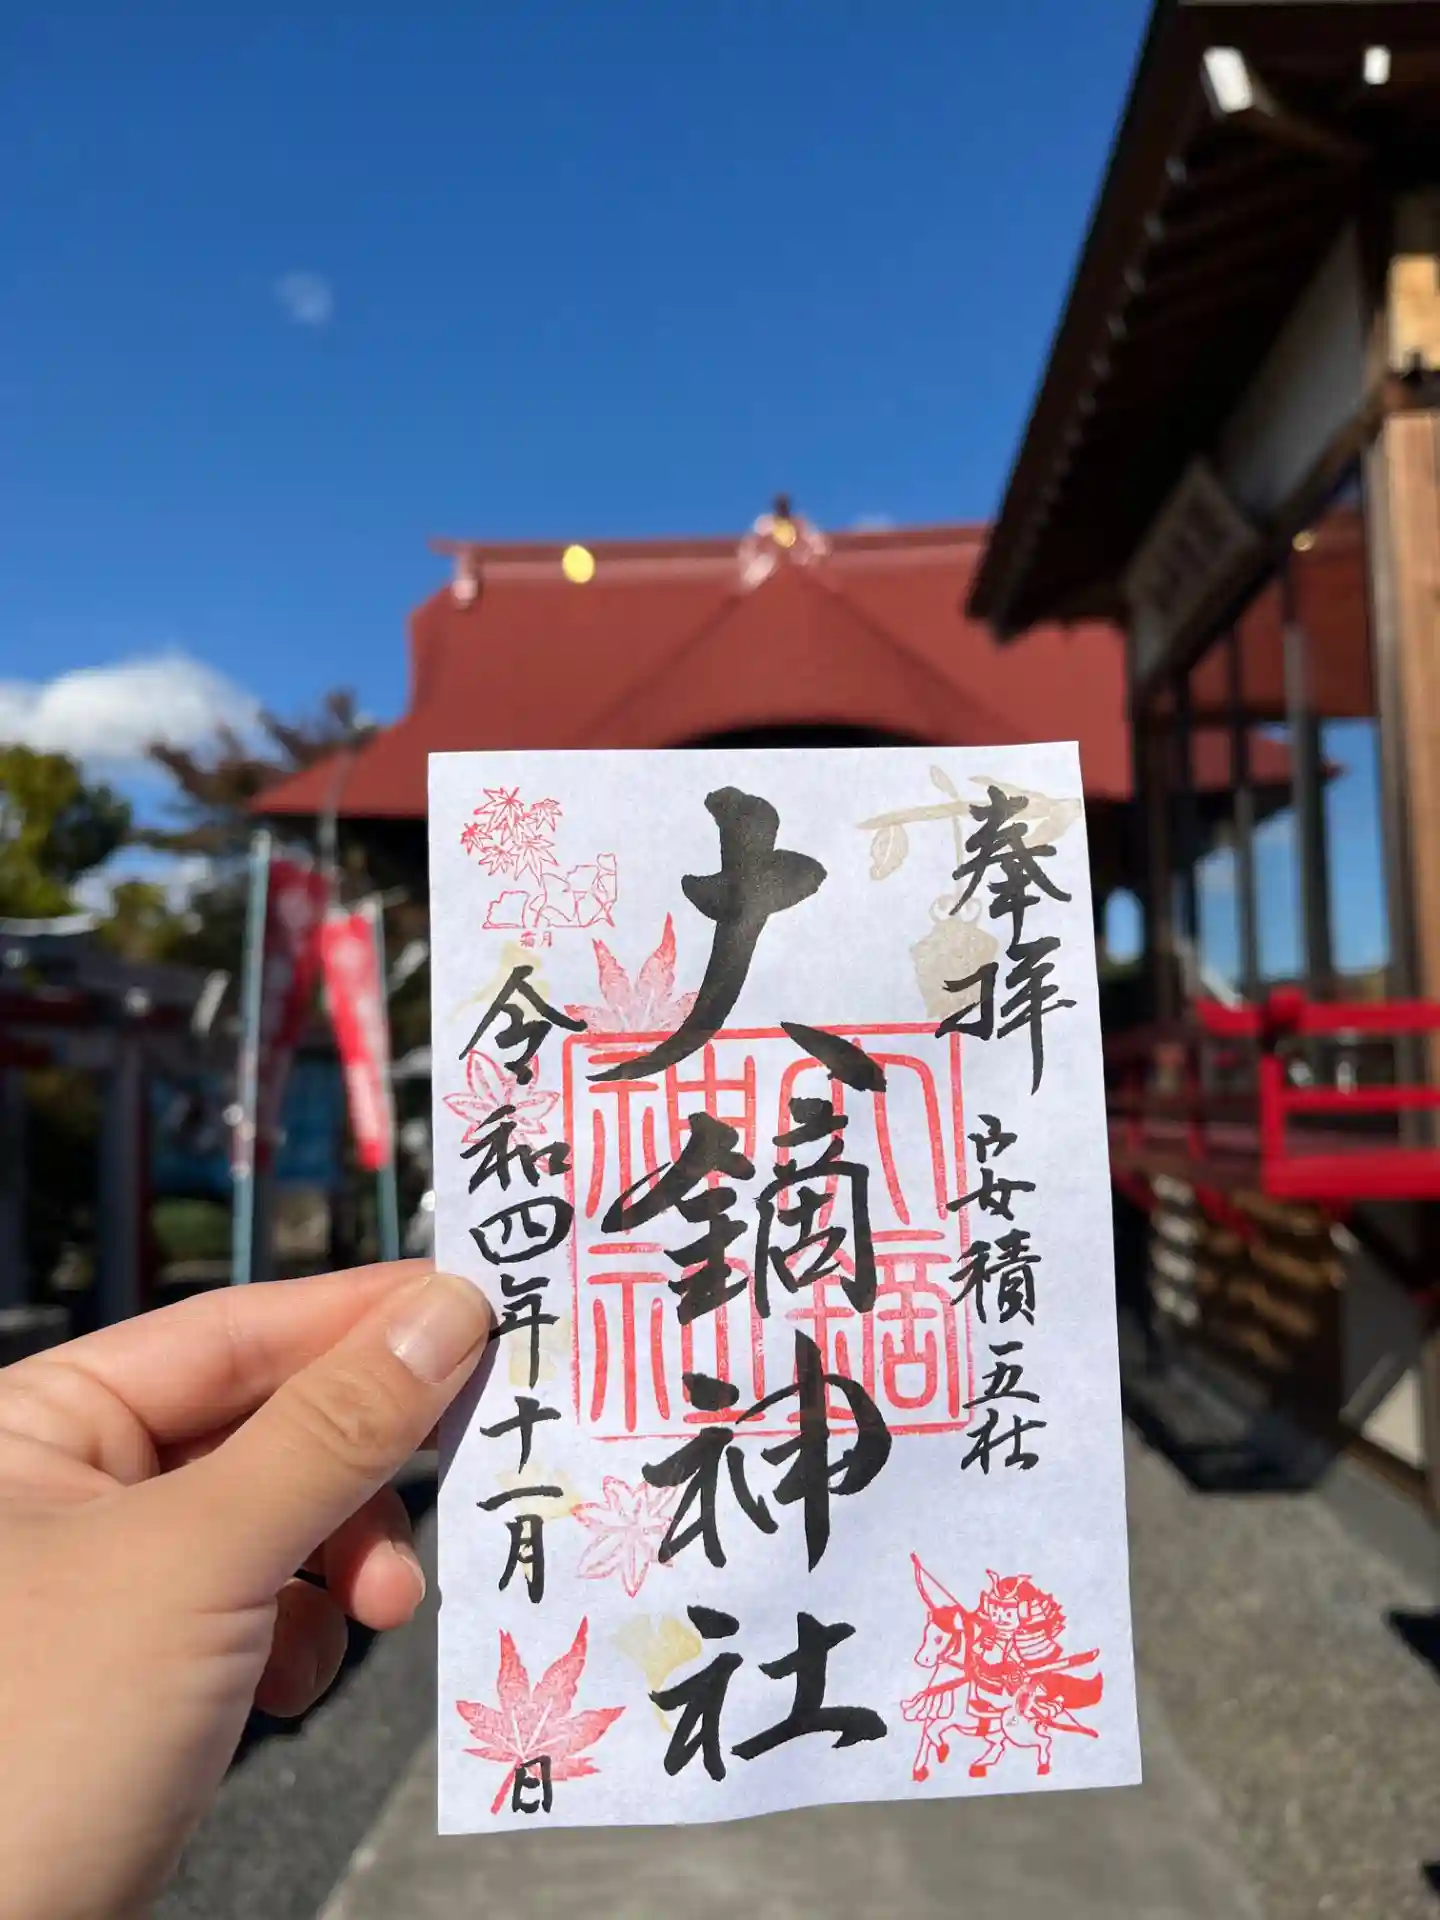 奉拝
安積五社
大鏑神社
大鏑
神社
令和四年十一月
日
霜月